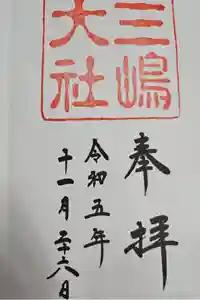 奉拝
三嶋
大社
令和五年
十一月二十六日